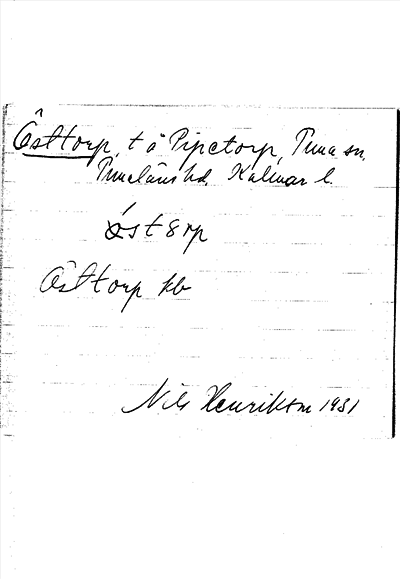 Östtorp, t å Pipetorp, Tuna sn,
Tunaläns hd. Kalmar l.
östərp
Östtorp kb
Nils Henriksson 1931